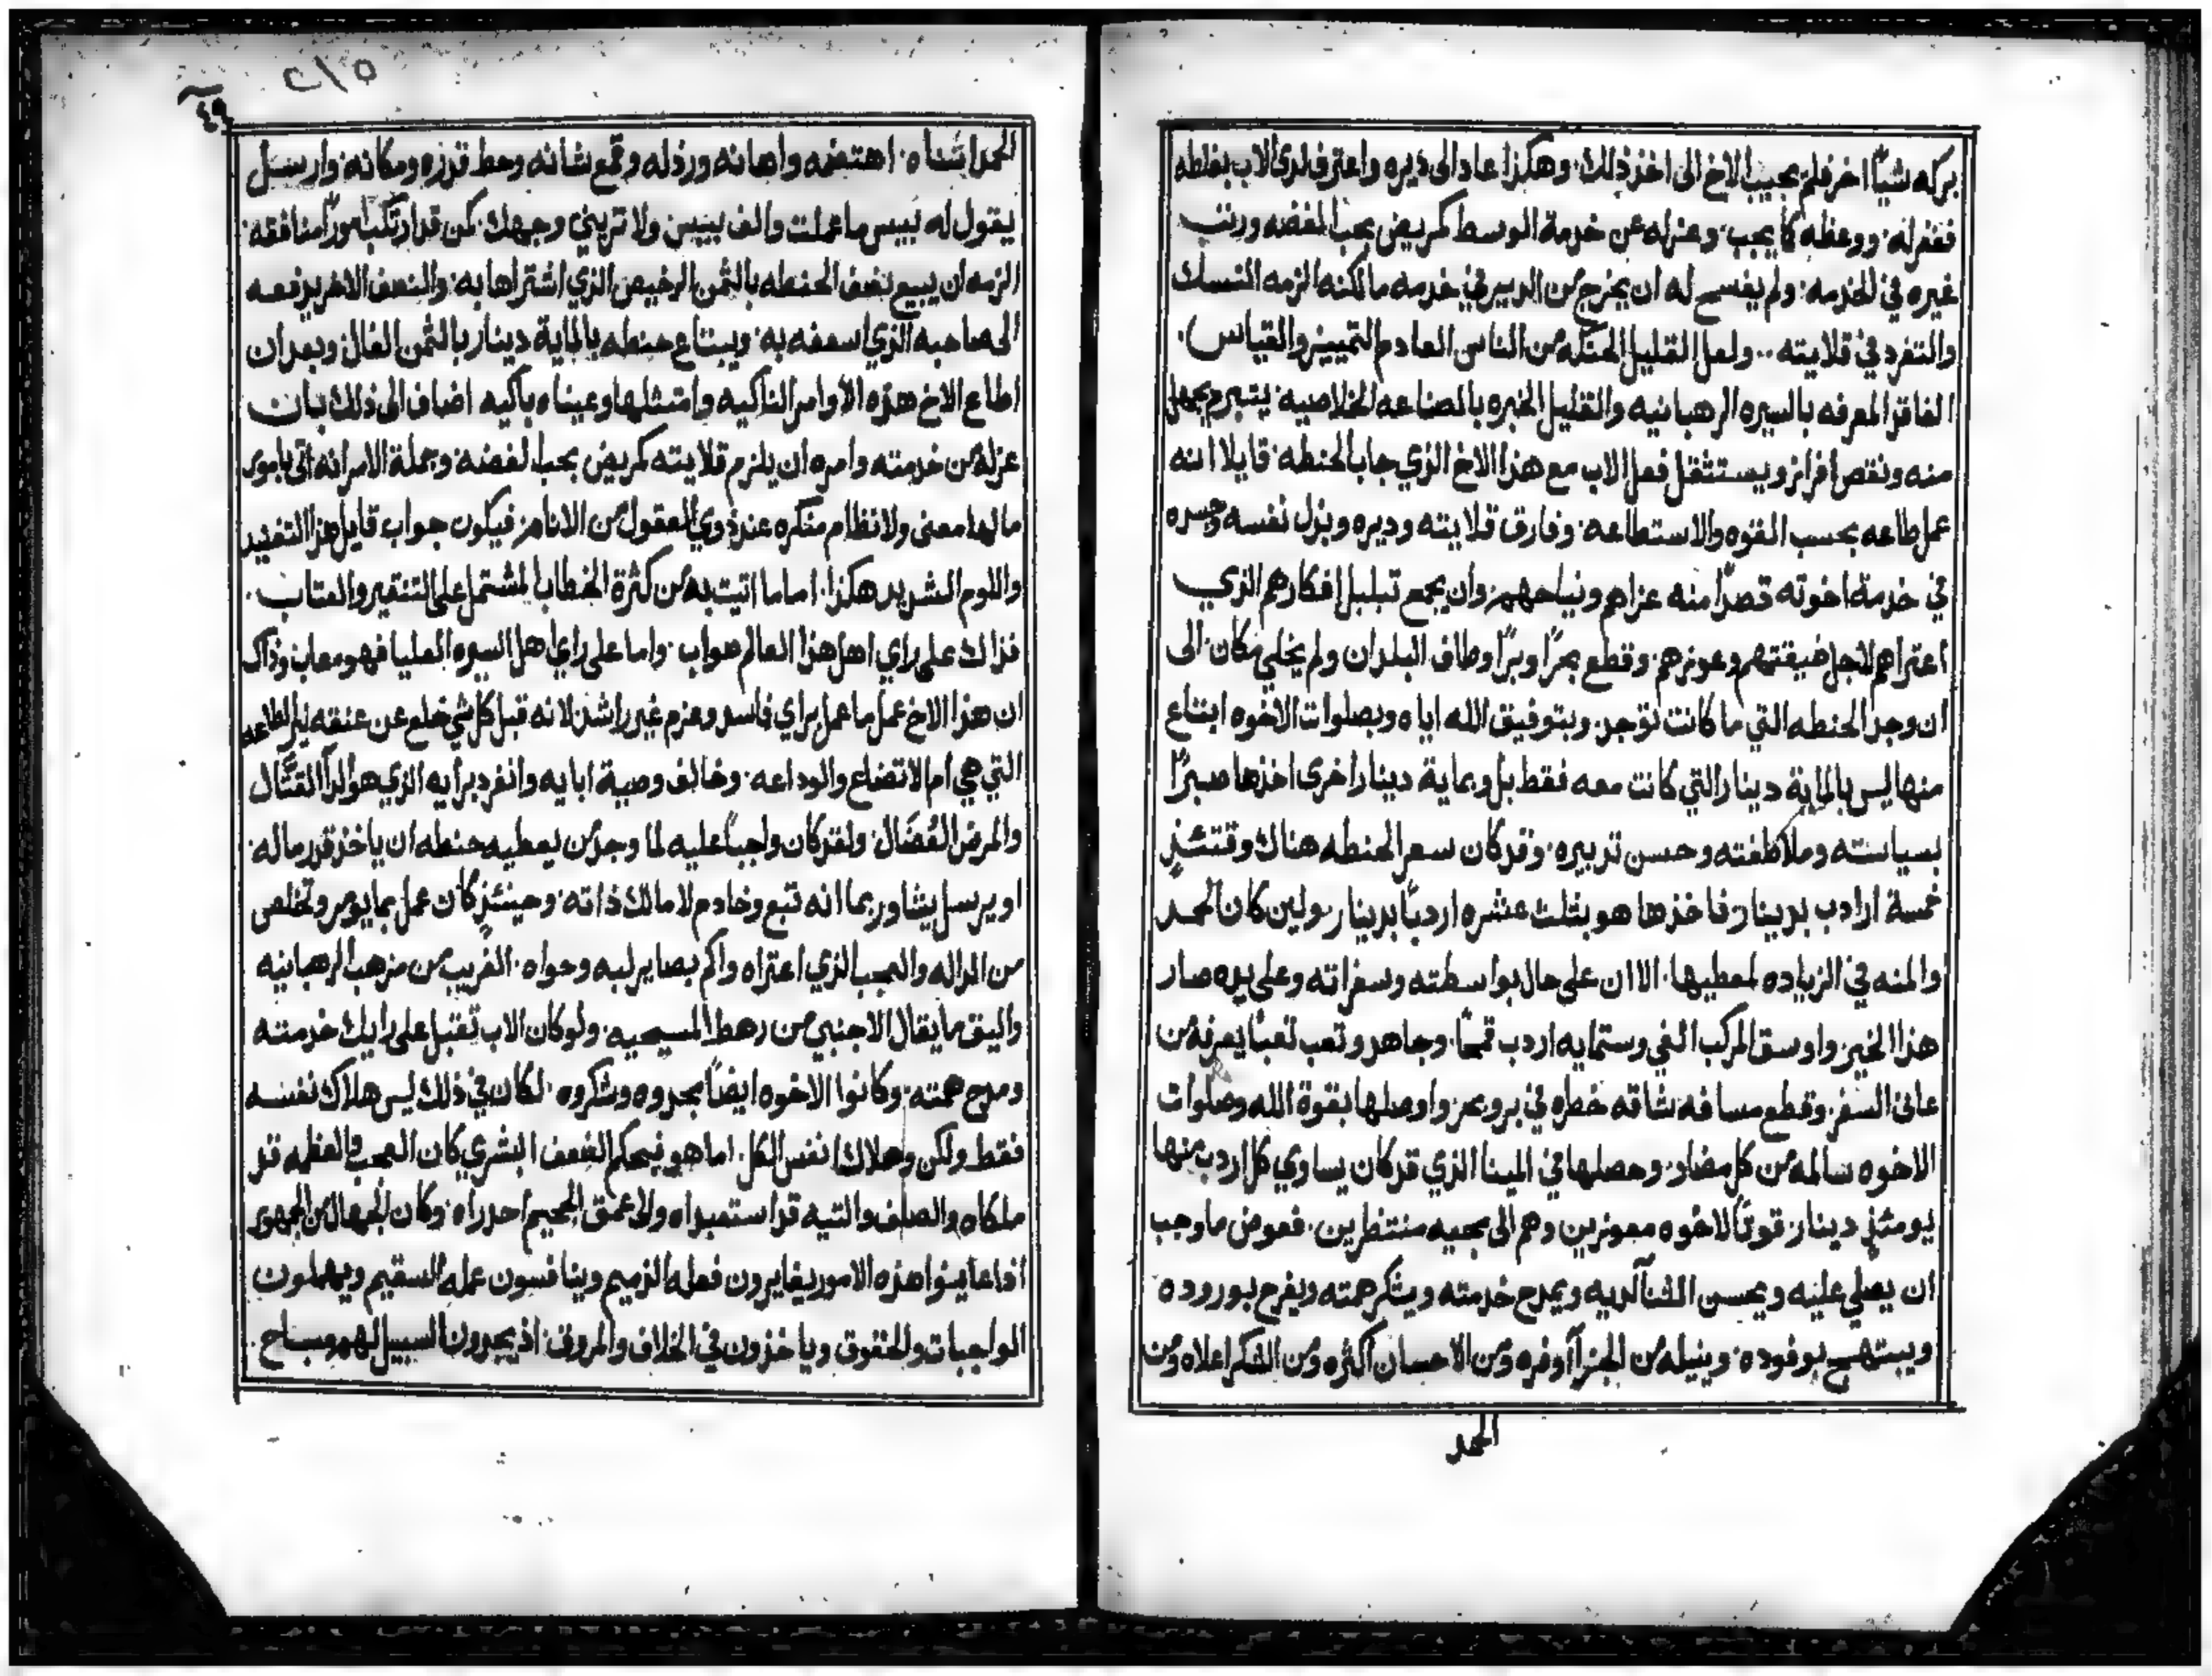 بركه شياً اخر فلم يجيب الاخ الى اخذ ذلك. وهكذا عاد الى ديره واعترف لدى الاب بغلطه
فغفر له. ووعظه كما يجب. وعزله عن خدمة الوسط كمريض بحب الفضه ورتب
غيره في الخدمه. ولم يفسح له ان يخرج من الدير في خدمه ما لكنه الزمه النسك
والتفرد في قلايته.. ولعل القليل الحنكه من الناس العادم التمييز والقياس).
الفاقد المعرفه بالسيره الرهبانيه والقليل الخبره بالصناعه الخلاصيه. يتبرم بجهل
منه ونقص افراز ويستثقل فعل الاب مع هذا الاخ الذي جاب الحنطه. قايلا انه
عمل طاعه بحسب القوه والاستطاعه. وفارق قلايته وديره وبذل نفسه وجسده
في خدمة اخوته قصداً منه عزاهم ونياحهم. وان يجمع تبلبل افكارهم الذي
اعتراهم لاجل ضيقتهم وعوزهم. وقطع بحراً وبراً وطاف البلدان ولم يخلي مكان. الى
ان وجد الحنطه التي ما كانت توجد. وبتوفيق الله اياه وبصلوات الاخوه ابتاع
منها ليس بالماية دينار التي كانت معه فقط بل وبماية دينار اخرى اخذها صبراً
بسياسته وملاطفته وحسن تدبيره. وقد كان سعر الحنطه هناك وقتئذٍ
خمسة ارادب بدينار. فاخذها هو بثلث عشره اردباً بدينار. ولين كان الحمد
والمنه في الزياده لمعطيها. الا ان على حال بواسطته وسفراته وعلى يده صار
هذا الخير. واوسق المركب الفي وستمايه اردب قمحاً. وجاهد وتعب تعباً يعرفه من
عانى السفر. وقطع مسافه شاقه خطره في بر وبحر. واوصلها بقوة الله وصلوات
الاخوه سالمه من كل مضار. وحصلها في المينا الذي قد كان يساوي كل اردب منها
يومئذٍ دينار. قوتاً لاخوه معوزين وهم الى مجيه منتظرين. فعوض ما وجب
ان يصلي عليه ويحسن الثنآ لديه ويمدح خدمته ويشكر همته ويفرح بوروده
ويبتهج بوفوده. وينيله من الجزآ اوفره ومن الاحسان اكثره ومن الشكر اعلاه ومن
الحمد
٤٩
الحمد اسناه. اهتضمه واهانه ورذله وقمع شانه وحط قدره ومكانه. وارسل
يقول له بيبس ما عملت والف بيبس ولا تريني وجهك. كمن قد ارتكب اموراً منافقه.
الزمه ان يبيع نصف الحنطه بالثمن الرخيص الذي اشتراها به. والنصف الاخر يدفعه
الى صاحبه الذي اسعفه به. ويبتاع حنطه بالماية دينار بالثمن الغال. وبعد ان
اطاع الاخ هذه الاوامر الناكيه وامتثلها وعيناه باكيه. اضاف الى ذلك بان
عزله من خدمته وامره ان يلزم قلايته كمريض بحب الفضه. وجملة الامر انه اتى بامور
ما لها معنى ولا نظام منكره عند ذوي العقول من الانام. فيكون جواب قايل هذا التفنيد
واللوم الشديد هكذا. اما ما اتيت به من كثرة الخطاب المشتمل على التنقير والعتاب.
فذلك على راي اهل هذا العالم صواب. واما على راي اهل السيره العليا فهو معاب. وذاك
ان هذا الاخ عمل ما عمل براي فاسد وعزم غير راشد. لانه قبل كل شي خلع عن عنقه نير الطاعه
التي هي ام الاتضاع والوداعه. وخالف وصية ابايه وانفرد برايه الذي هو الدآ القتَّال
والمرض العُضَال. ولقد كان واجباً عليه لما وجد من يعطيه حنطه ان ياخذ قدر ماله.
او يرسل يشاور بما انه تبع وخادم لا مالك ذاته. وحينئذٍ كان عمل بما يومر وتخلص
من الداله والعجب الذي اعتراه واكم بصاير لبه وحواه. الغريب من مذهب الرهبانيه
واليق ما يقال الاجنبي من رهط المسيحيه. ولو كان الاب تقبل على رايك خدمته
ومدح همته. وكانوا الاخوه ايضاً مجدوه وشكروه. لكان في ذلك ليس هلاك نفسه
فقط ولكن وهلاك انفس الكل. اما هو فبحكم الضعف البشري كان العجب والعظمه قد
ملكاه والصلف والتيه قد استعبداه والى عمق الجحيم احدراه. وكان الجهال من الجمهور
اذا عاينوا هذه الامور يغايرون فعله الذميم وينافسون عمله السقيم ويهملون
الواجبات والحقوق وياخذون في الخلاف والمروق. اذ يجدون السبيل لهم مباح.